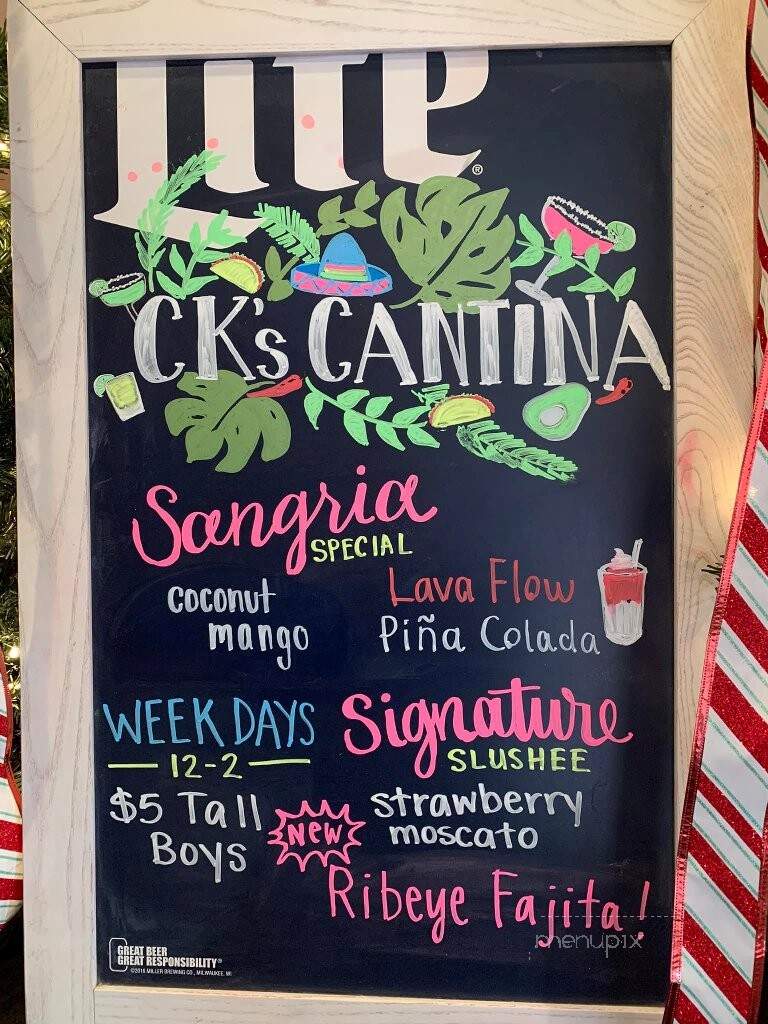 Lite®
CK's CANTINA
Sangria
SPECIAL
coconut
mango
Lava Flow
Piña Colada
WEEK DAYS
12-2
$5 Tall
Boys
Signature
SLUSHEE
strawberry
moscato
NEW
Ribeye Fajita!
menupix
GREAT BEER
GREAT RESPONSIBILITY®
©2016 MILLER BREWING CO., MILWAUKEE, WI